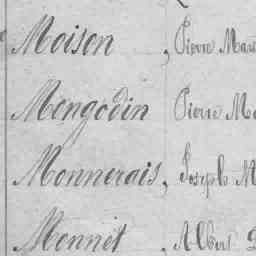 Moison, Pierre Mar
Mongodin Pierre M
Monnerais, Joseph M
Monnet, Albert